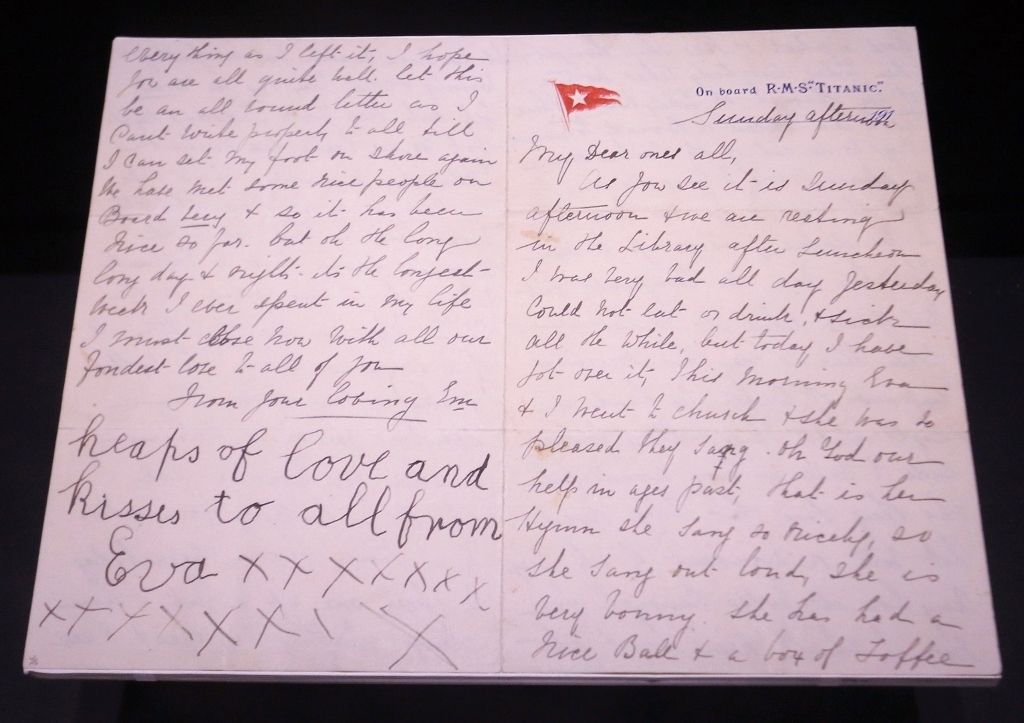 On board R·M·S·"TITANIC".
Sunday afternoon
My Dear ones all,
As you see it is Sunday
afternoon & we are resting
in the Library after Luncheon
I was very bad all day Yesterday
Could not eat or drink, & sick
all the while, but today I have
got over it, This morning Eva
& I went to church & she was so
pleased they sang Oh God our
help in ages past, that is her
Hymn she sang so nicely, so
she sang out loud, she is
very bonny. She has had a
nice Ball & a box of Toffee
everything as I left it, I hope
you are all quite well. let this
be an all round letter as I
Cant write properly to all till
I can set my foot on shore again
We have met some nice people on
Board Lucy & so it has been
nice so far. but oh the long
long day & nights its the longest
week I ever spent in my life
I must close now with all our
fondest love to all of you
From your loving Em
heaps of love and
kisses to all from
Eva x x x x x x x
x x x x x x x \ \ x